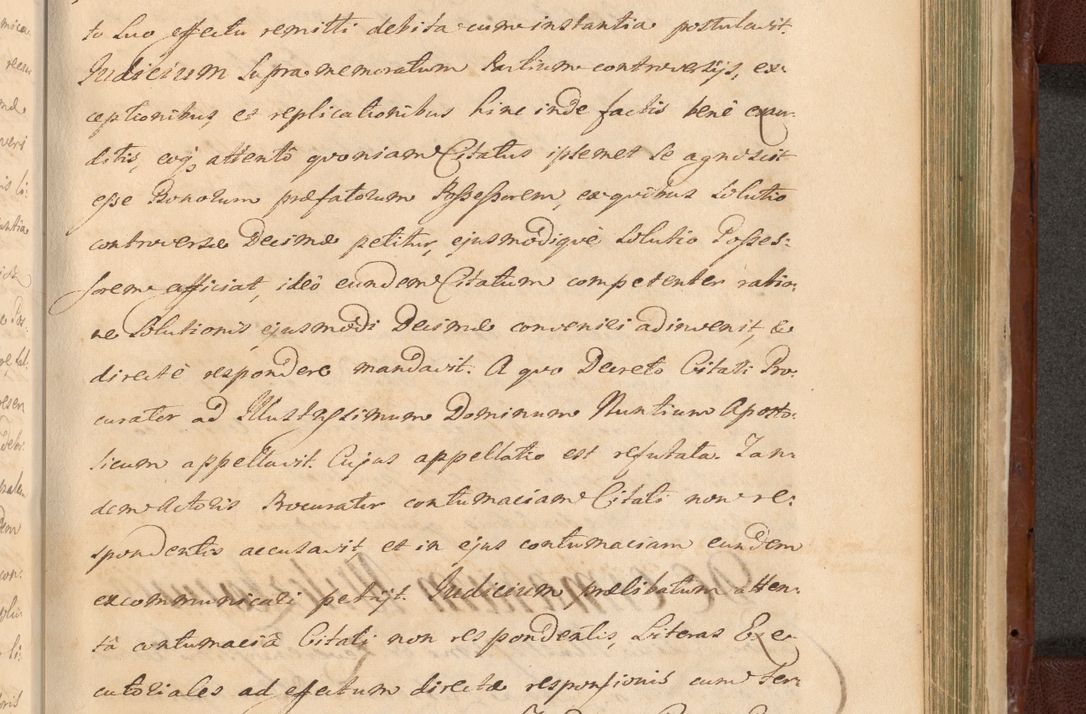 to suo effectu remitti debita cum instantia postulavit.
Judicium supra memoratum Partium controversijs, ex-
ceptionibus, et replicationibus hinc inde factis benè exau-
ditis, eoq; attentô quoniam Citatus ipsemet se agnoscit
esse Bonorum præfatorum Possessorem, ex quibus solutio
controversæ Decimæ petitur, ejusmodiquè solutio Posses-
sorem afficiat, ideô eundem Citatum competenter ratio-
ne solutionis ejusmodi Decimæ conveniri adinvenit, &
directè respondere mandavit. A quo Decreto Citati Pro-
curator ad Illustrissimum Dominum Nuntium Aposto-
licum appellavit. Cujus appellatio est refutata. Tan-
dem Actoris Procurator contumaciam Citati non re-
spondentis accusavit et in ejus contumaciam eundem
excommunicari petijt. Judicium prælibatum atten-
tâ contumaciâ Citati non respondentis, Literas Exe-
cutoriales ad effectum directæ responsionis cum Ter-